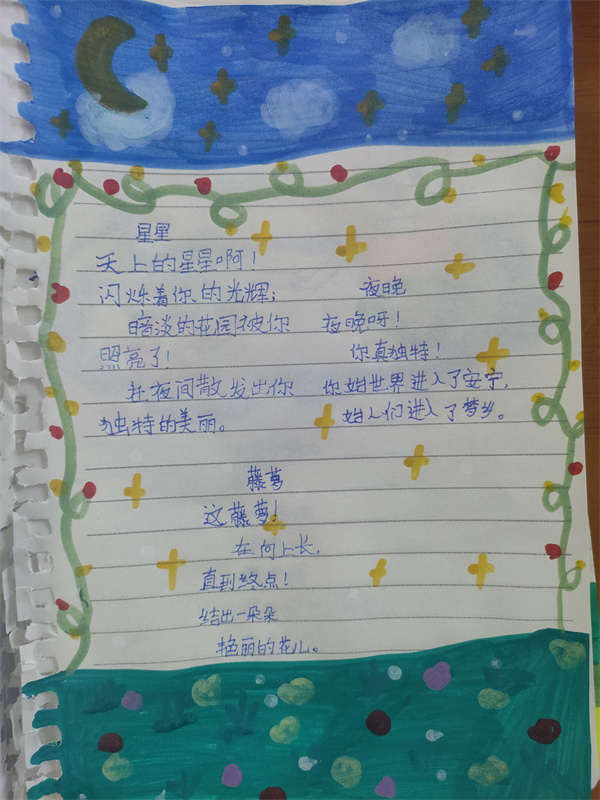 星星
天上的星星啊！
闪烁着你的光辉；
暗淡的花园被你
照亮了！
在夜间散发出你
独特的美丽。
夜晚
夜晚呀！
你真独特！
你如世界进入了安宁，
如人们进入了梦乡。
藤萝
这藤萝！
在向上长，
直到终点！
结出一朵朵
艳丽的花儿。